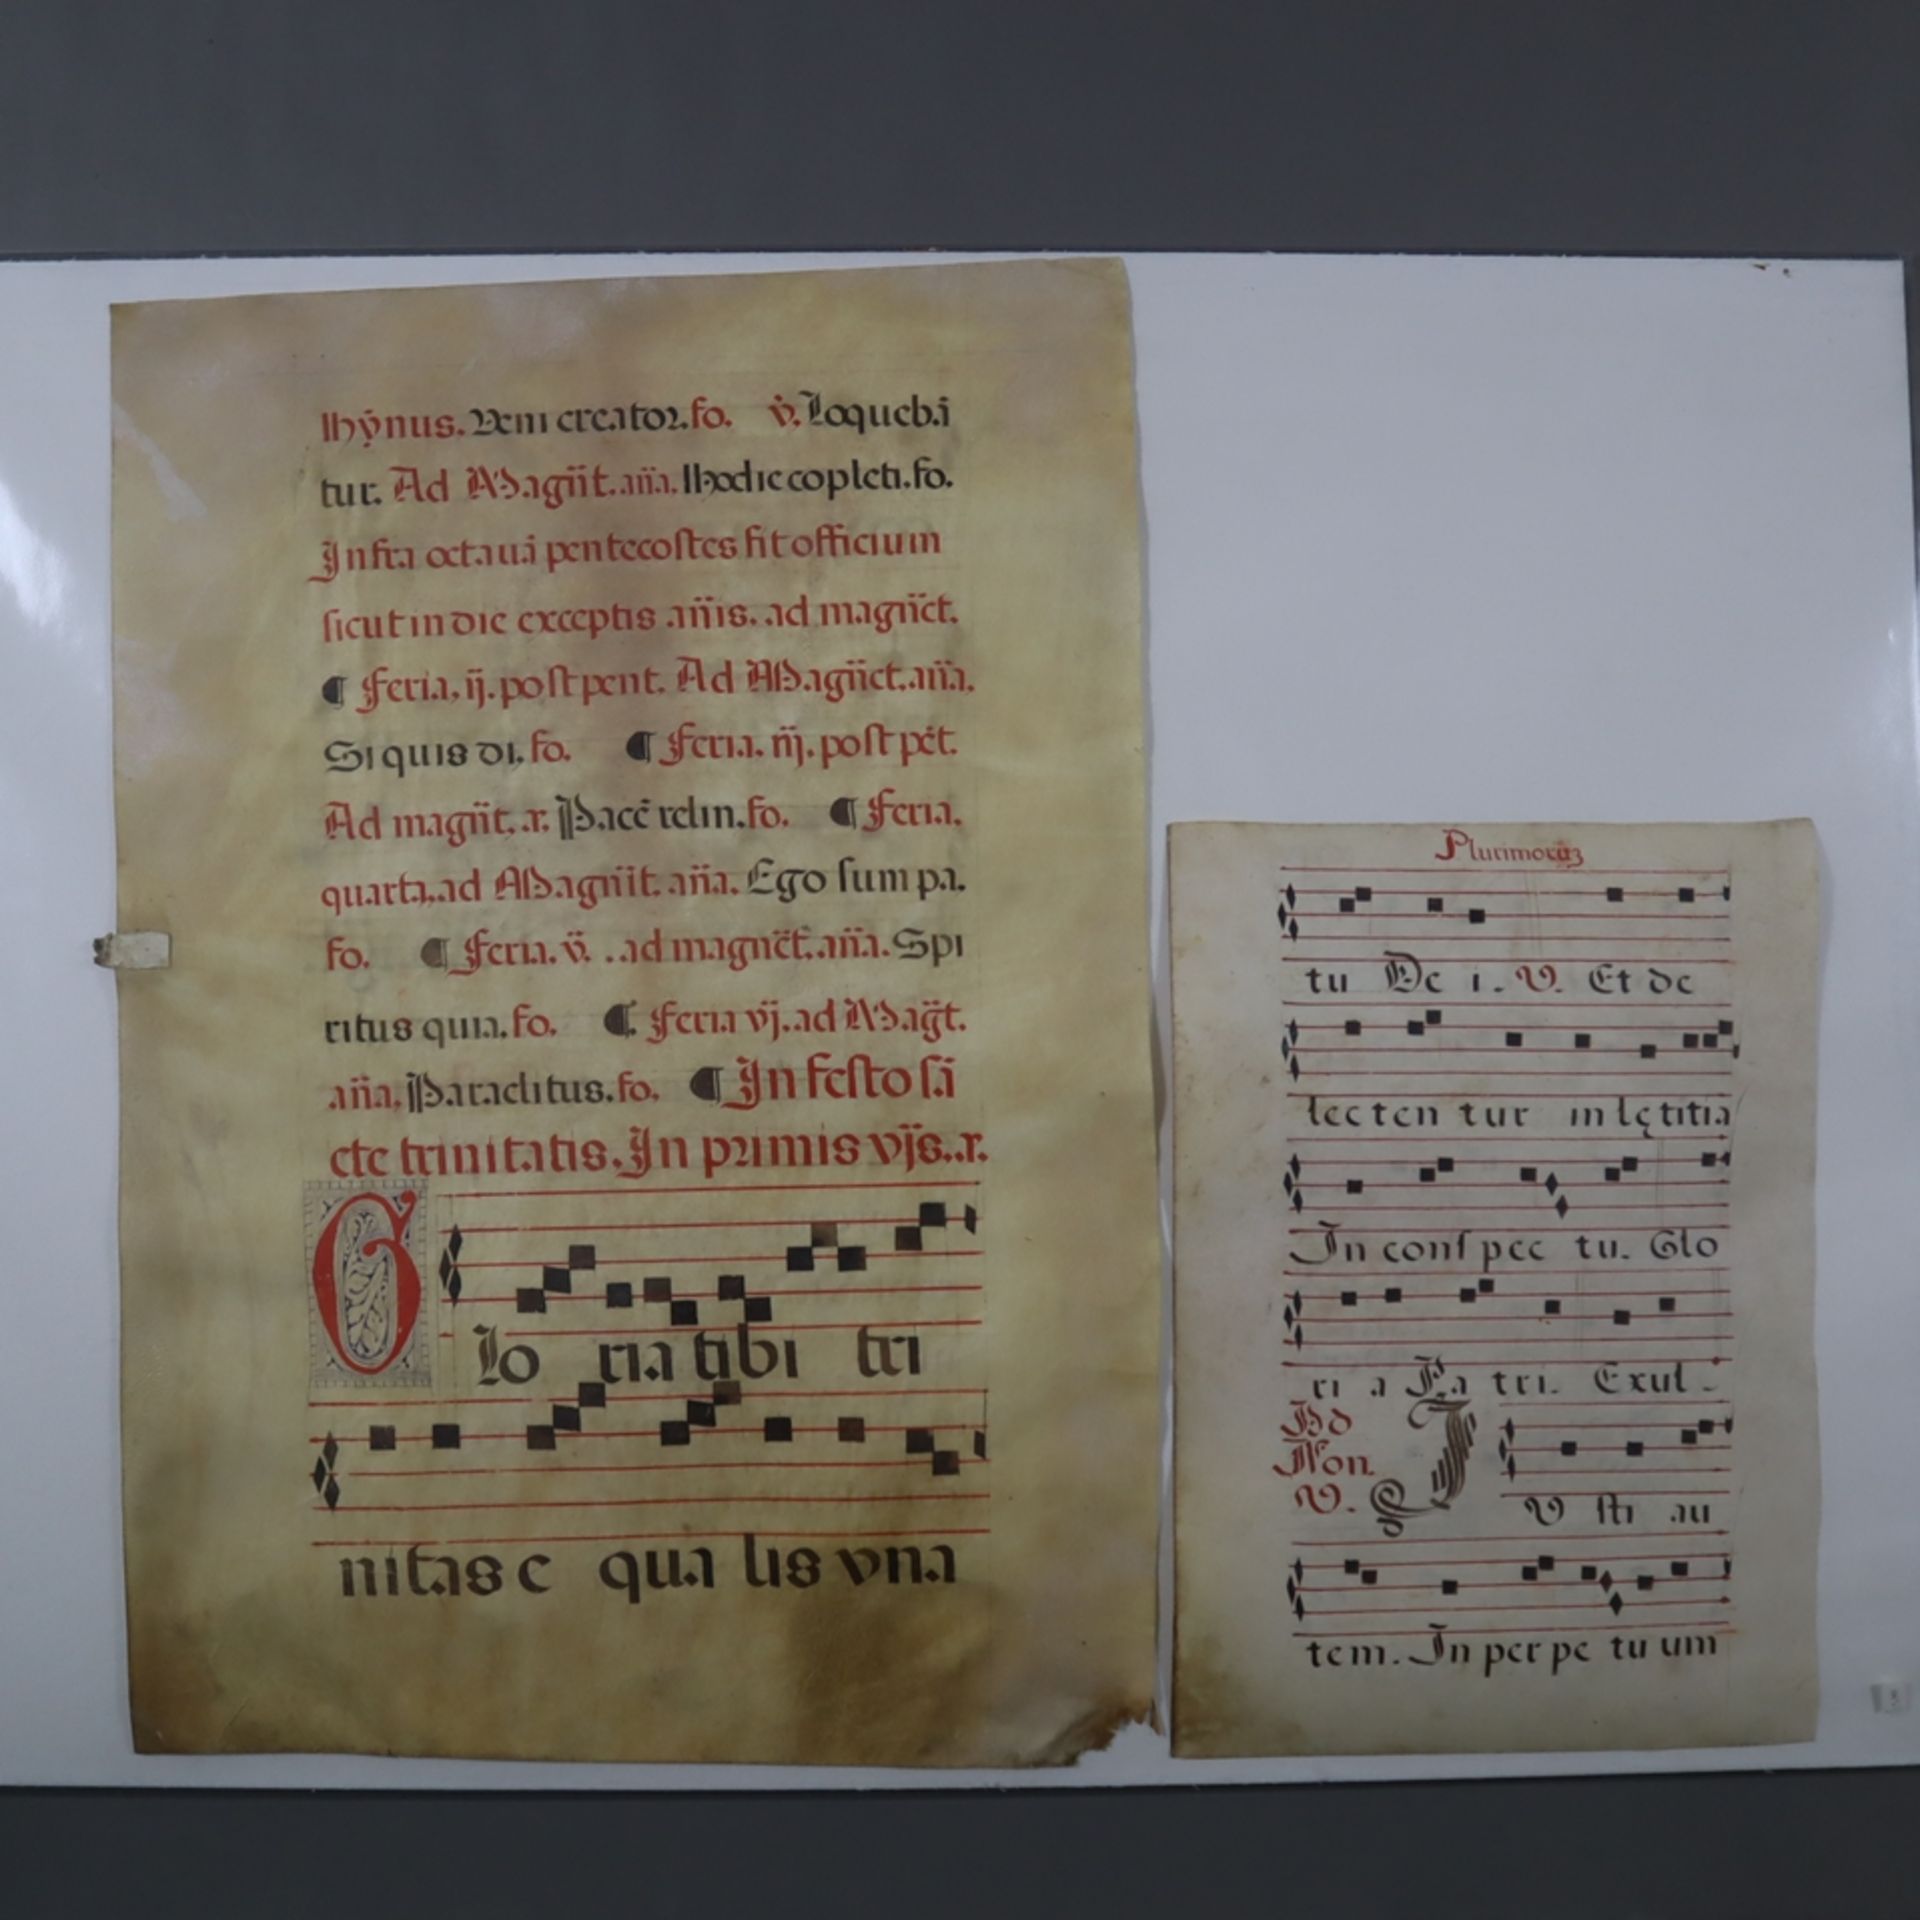 hẏnus. Veni creator. fo. v̇. Loqueba
tur. Ad Magn̄it. an̄a. Hodie copleti. fo.
Infra octaua pentecoſtes fit officium
ſicut in die exceptis an̄is. ad magn̄ct.
¶ Feria. ij. poſt pent. Ad Magn̄ict. an̄a.
Si quis di. fo. ¶ Feria. iij. poſt pēt.
Ad magn̄it. a. Pacē relin. fo. ¶ Feria.
quarta. ad Magn̄it. an̄a. Ego ſum pa.
fo. ¶ Feria. v̄. ad magnēt. an̄a. Spi
ritus quia. fo. ¶ Feria vj. ad Maḡt.
an̄a. Paraclitus. fo. ¶ In feſto ſa
cte trinitatis. In primis vṙs. a.
Glo ria tibi tri
nitas e qua lis vna
Plurimorūȝ
tu De i. V. Et de
lec ten tur in lętitia
In conſ pec tu. Glo
ri a Pa tri. Exul-
Ad
Non.
V.
I V ſti au
tem. In per pe tu um